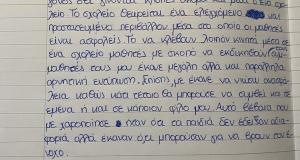 λείο. Το σχολείο θεωρείται ένα ελεγχόμενο και
προστατευμένο περιβάλλον μέσα στο οποίο οι μαθητές
είναι ασφαλείς. Το να κλέβουν λοιπόν κινητά μέσα σε
ένα σχολείο μαθητές με σκοπό να εκδικηθούν συμ-
μαθητές τους μου έκανε μεγάλη αλλά και παράλληλα
αρνητική εντύπωση. Επίσης, με έκανε να νιώσω ανασφά-
λεια καθώς κάτι τέτοιο θα μπορούσε να συμβεί και σε
εμένα ή και σε κάποιον φίλο μου. Αυτό βέβαια που
με χαροποίησε ήταν ότι τα παιδιά δεν έδειξαν αδια-
φορία αλλά έκαναν ότι μπορούσαν για να βρουν τον έ-
νοχο.